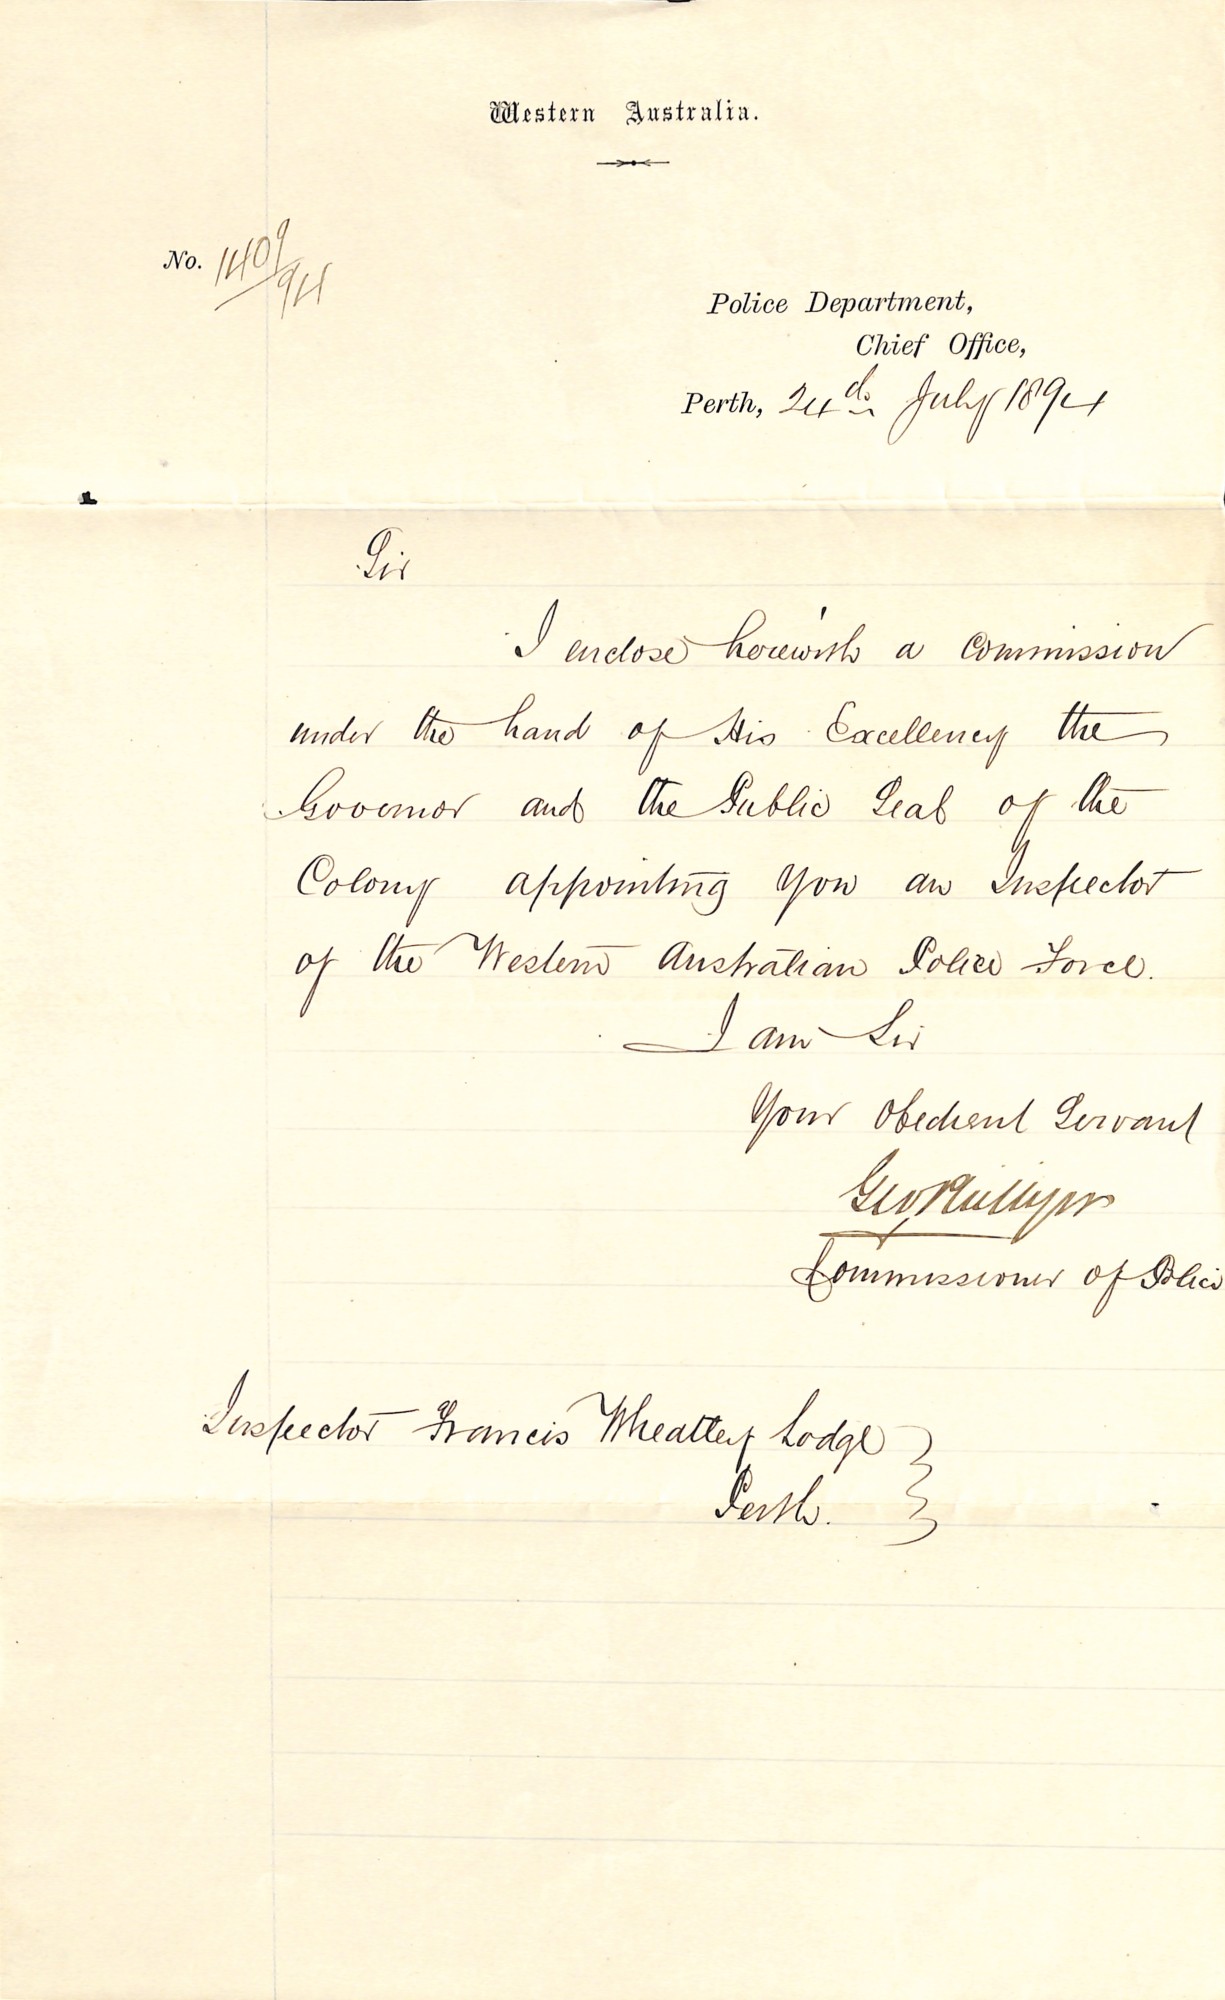 Western Australia.
No. 1409/94
Police Department,
Chief Office,
Perth, 24th July 1894
Sir
I enclose herewith a Commission
under the hand of His Excellency the
Governor and the Public Seal of the
Colony appointing you an Inspector
of the Western Australian Police Force.
I am Sir
Your Obedient Servant
Geo Phillips
Commissioner of Police
Inspector Francis Wheatley Lodge
Perth.